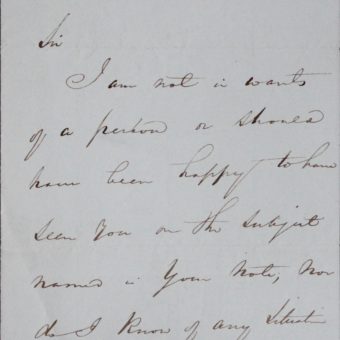 Sir
I am not in wants
of a person or should
have been happy to have
seen You on the subject
named in Your Note, Nor
do I know of any Situation